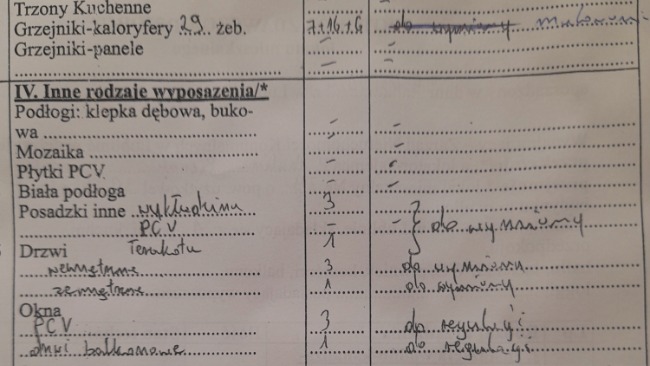 Trzony Kuchenne
Grzejniki-kaloryfery 29 żeb. 7+16+6 do wymiany malowani
Grzejniki-panele - -
IV. Inne rodzaje wyposażenia/*
Podłogi: klepka dębowa, buko-
wa - -
Mozaika - -
Płytki PCV - -
Biała podłoga - -
Posadzki inne wykładzina 3
PCV - - do wymiany
Drzwi terakota 1
wewnętrzne 3 do wymiany
zewnętrzne 1 do wymiany
Okna
PCV 3 do regulacji
drzwi balkonowe 1 do regulacji